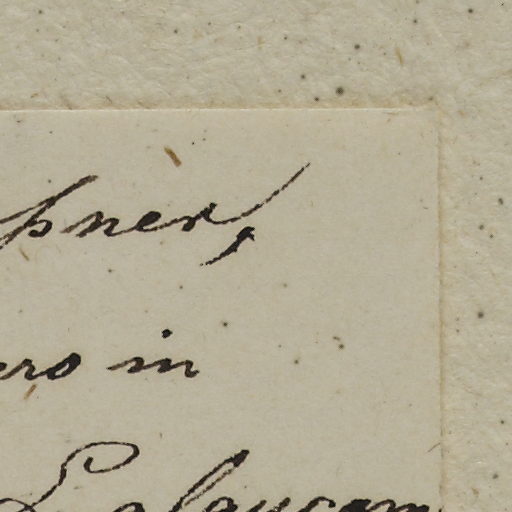 pner,
ero in
L. glaucam